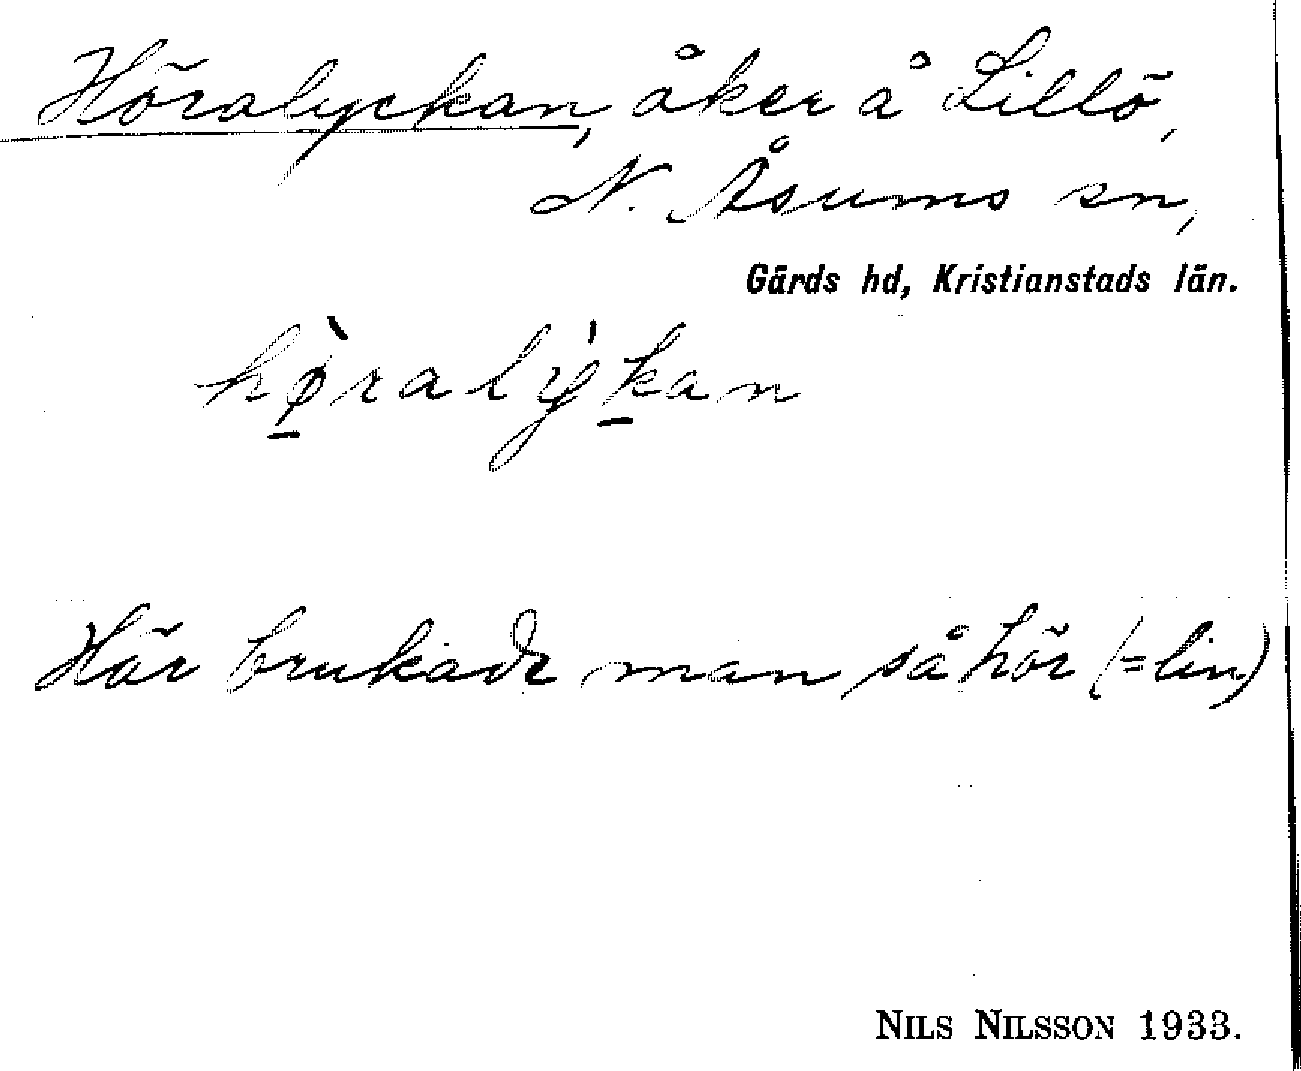 Höralyckan, åker å Lillö,
N. Åsums sn,
Gärds hd, Kristianstads län.
hø̠̀ralýk̠an
Här brukade man så hör (= lin)
NILS NILSSON 1933.